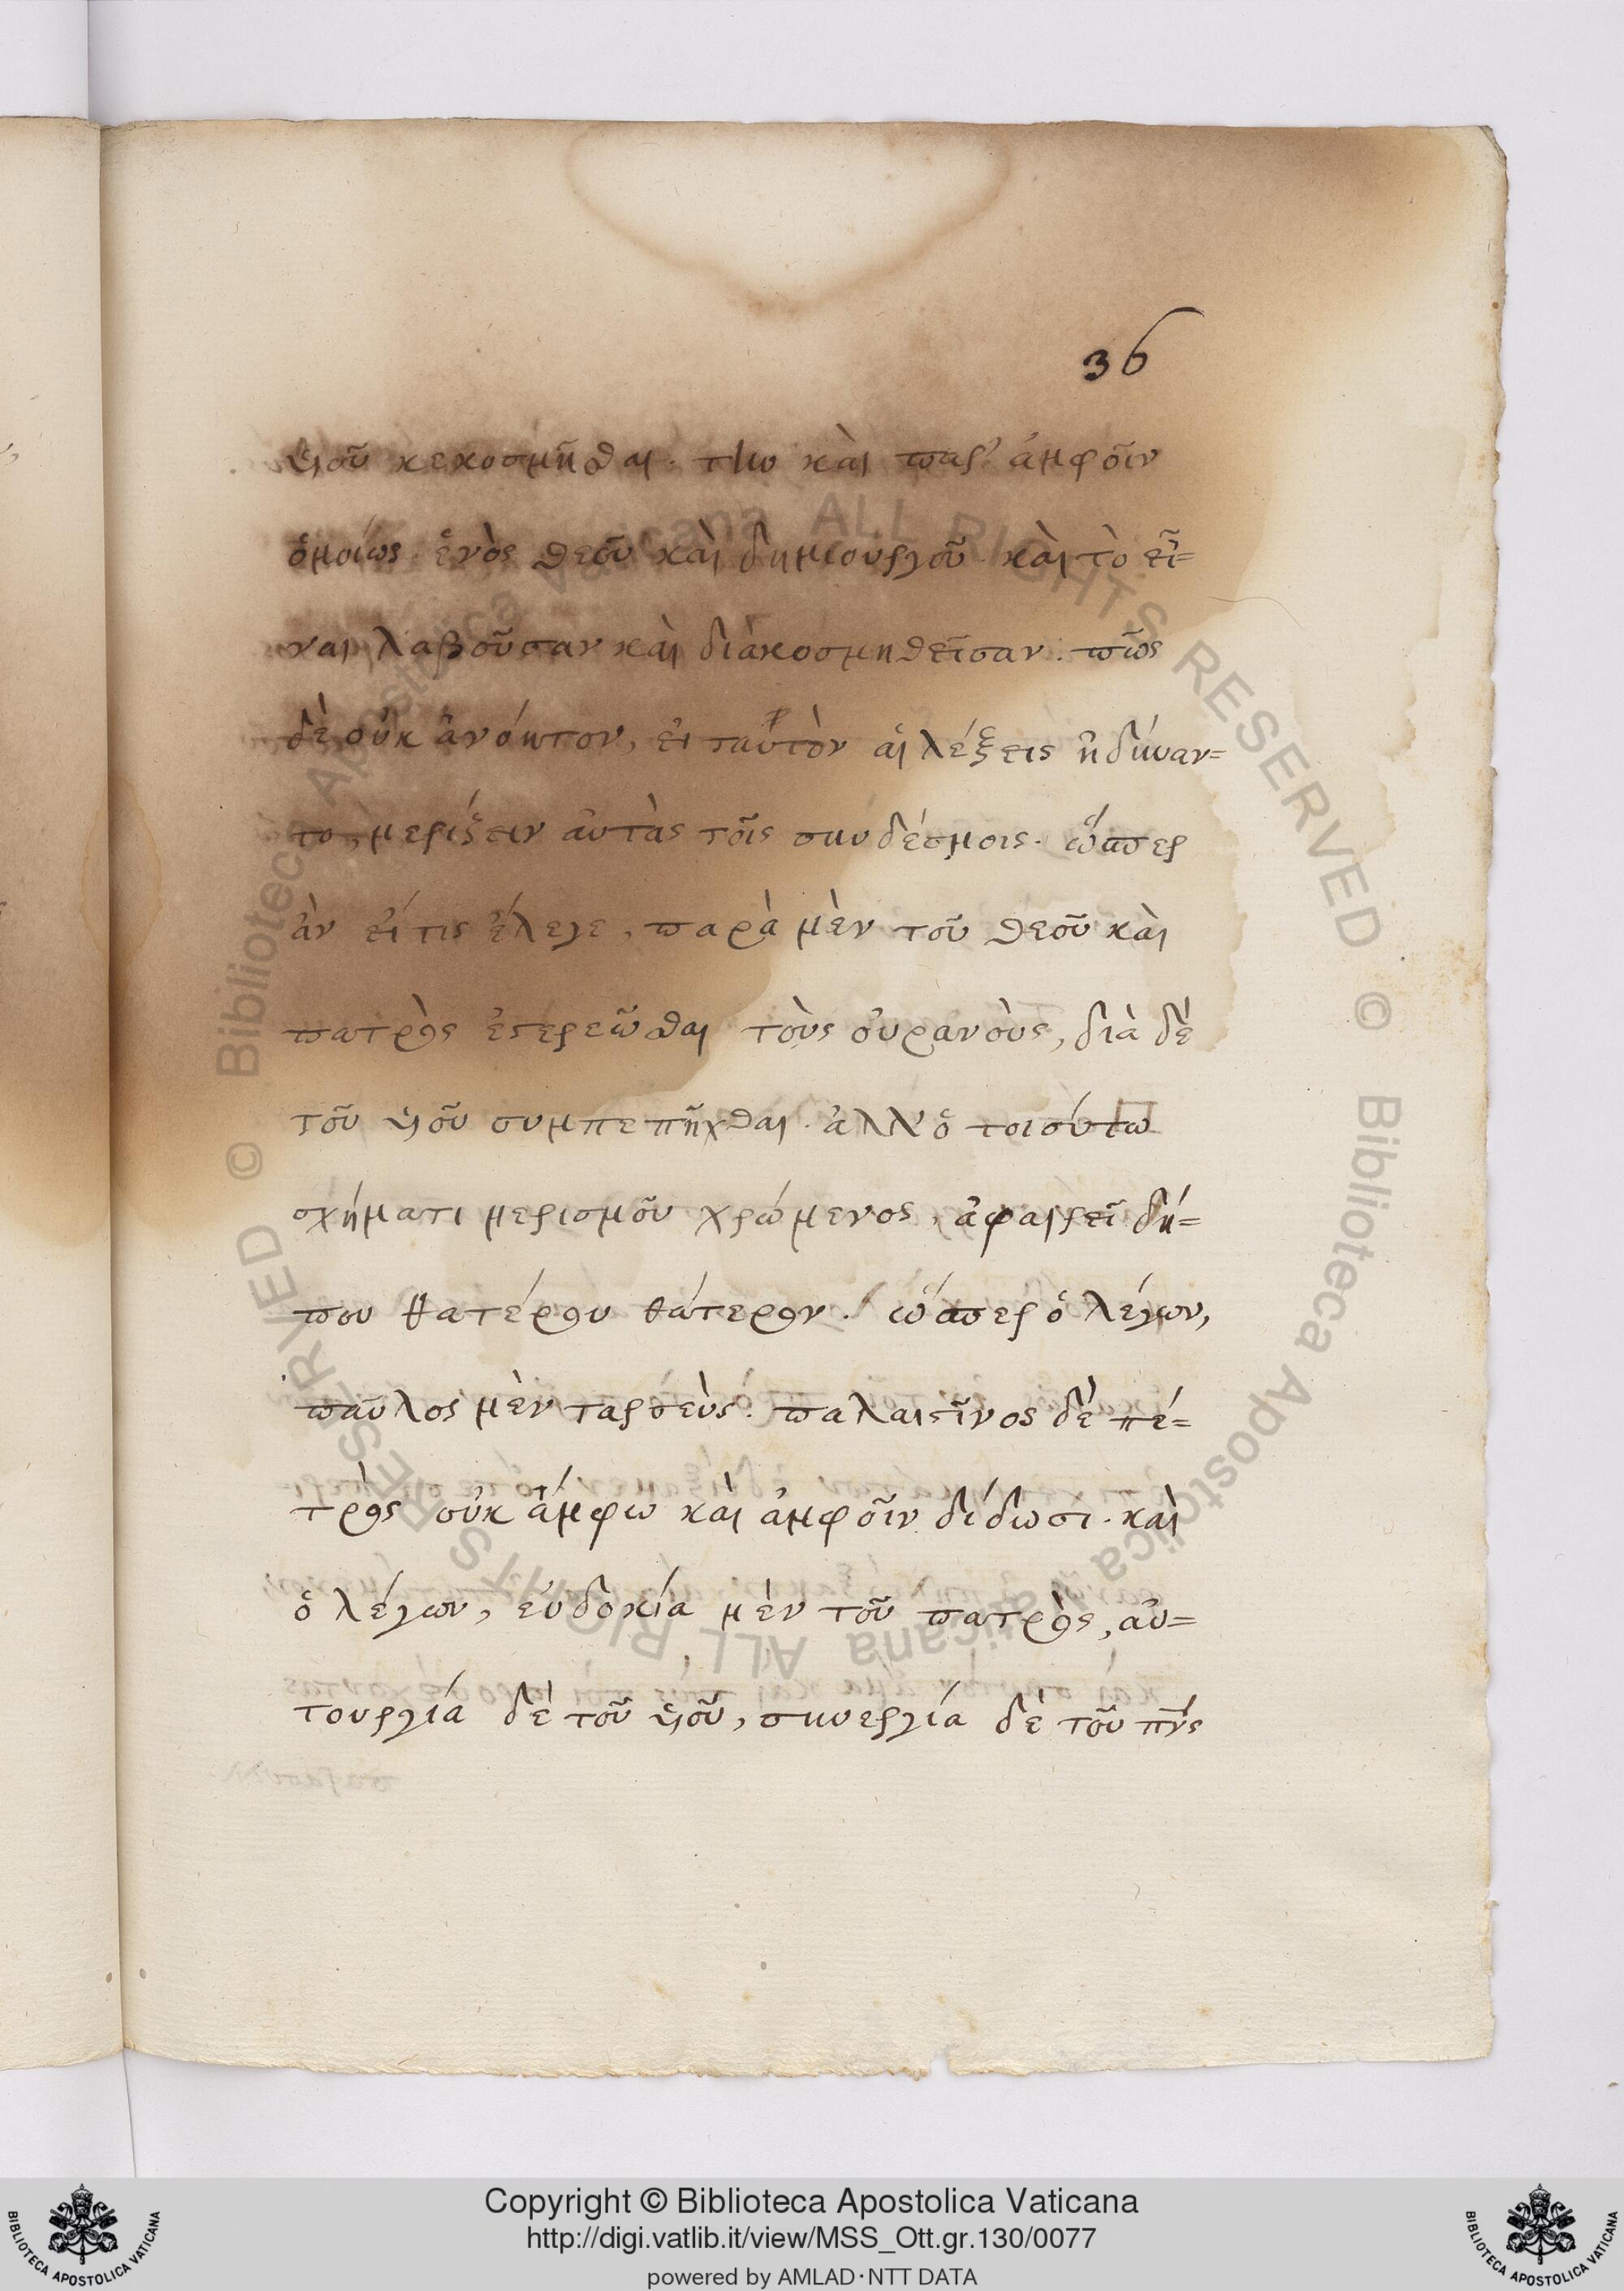 36
ὑιοῦ κεκοσμῆσθαι. τὴν καὶ παρ' ἀμφοῖν
ὁμοίως ἑνὸς θεοῦ καὶ δημιουργοῦ. καὶ τὸ εἶ=
ναι λαβοῦσαν καὶ διακοσμηθεῖσαν. πῶς
δὲ οὐκ ἀνόητον, εἰ ταὐτὸν αἱ λέξεις ἠδύναν=
το, μερίζειν αὐτὰς τοῖς συνδέσμοις. ὥσπερ
ἀν εἴ τις ἔλεγε, παρὰ μὲν τοῦ θεοῦ καὶ
πατρὸς ἐστερεῶσθαι τοὺς οὐρανοὺς, διὰ δὲ
τοῦ ὑιοῦ συμπεπῆχθαι. ἀλλ' ὁ τοιούτω
σχήματι μερισμοῦ χρώμενος, ἀφαιρεῖ δή=
που θατέρου θάτερον. ὥσπερ ὁ λέγων,
παῦλος μὲν ταρσεὺς. παλαιστῖνος δὲ πέ=
τρος οὐκ ἄμφω καὶ ἀμφοῖν δίδωσι. καὶ
ὁ λέγων, εὐδοκία μὲν τοῦ πατρὸς, αὐ=
τουργία δὲ τοῦ ὑιοῦ, συνεργία δὲ τοῦ πν̅ς
Copyright © Biblioteca Apostolica Vaticana
http://digi.vatlib.it/view/MSS_Ott.gr.130/0077
powered by AMLAD·NTT DATA
BIBLIOTECA APOSTOLICA VATICANA
BIBLIOTECA APOSTOLICA VATICANA
© Biblioteca Apostolica Vaticana ALL RIGHTS RESERVED
© Biblioteca Apostolica Vaticana ALL RIGHTS RESERVED